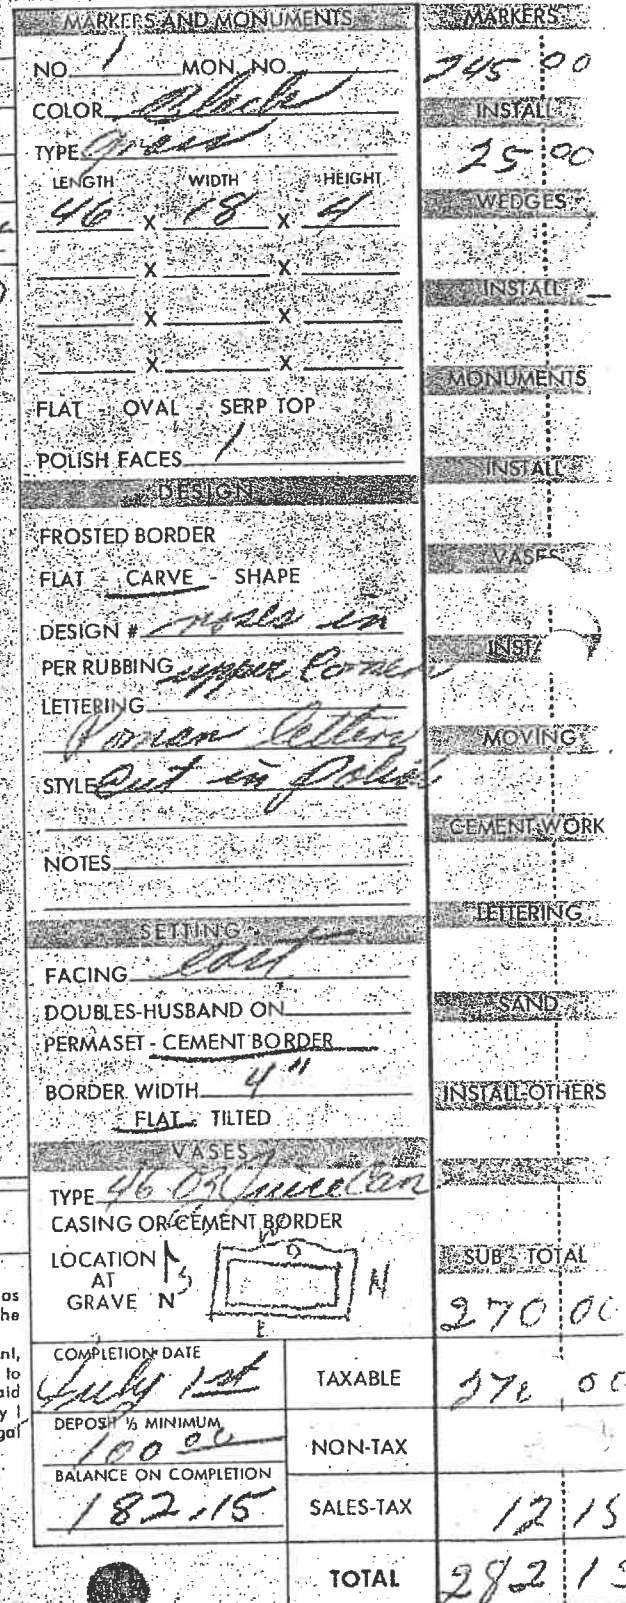 MARKERS AND MONUMENTS
NO. 1 MON. NO.
COLOR Black
TYPE
LENGTH WIDTH HEIGHT
46 X 18 X 4
X X
X X
X X
FLAT - OVAL - SERP TOP
POLISH FACES 1
DESIGN
FROSTED BORDER
FLAT - CARVE - SHAPE
DESIGN # roses in
PER RUBBING upper Corner
LETTERING
Roman letters
STYLE Cut in Polish
NOTES
SETTING
FACING east
DOUBLES-HUSBAND ON
PERMASET - CEMENT BORDER
BORDER WIDTH 4"
FLAT - TILTED
VASES
TYPE 46 OZ Juice Can
CASING OR CEMENT BORDER
LOCATION
AT
GRAVE N S
W
N
E
COMPLETION DATE
July 1st
DEPOSIT ⅓ MINIMUM
100 00
BALANCE ON COMPLETION
182.15
MARKERS
245 00
INSTALL
25 00
WEDGES
INSTALL
MONUMENTS
INSTALL
VASES
INSTA
MOVING
CEMENT WORK
LETTERING
SAND
INSTALL-OTHERS
SUB - TOTAL
270 00
TAXABLE 270 00
NON-TAX
SALES-TAX 12 15
TOTAL 282 15
as
he
nt,
to
aid
y I
gal